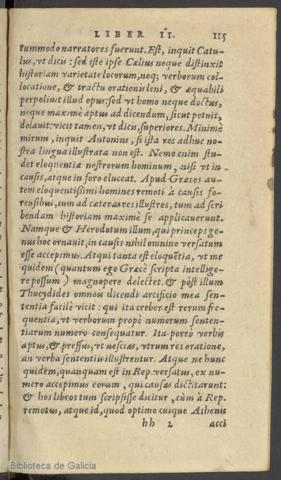 LIBER II. 115
tummodo narratores fuerunt. Est, inquit Catu-
lus, vt dicis: sed iste ipse Cælius neque distinxit
historiam varietate locorum, neq; verborum col-
locatione, & tractu orationis leni, & æquabili
perpoliuit illud opus: sed vt homo neque doctus,
neque maximè aptus ad dicendum, sicut potuit,
dolauit: vicit tamen, vt dicis, superiores. Minimè
mirum, inquit Antonius, si ista res adhuc no-
stra lingua illustrata non est. Nemo enim stu-
det eloquentiæ nostrorum hominum, nisi vt in
causis, atque in foro eluceat. Apud Græcos au-
tem eloquentissimi homines remoti à causis fo-
rensibus, cum ad cæteras res illustres, tum ad scri
bendam historiam maximè se applicauerunt.
Namque & Herodotum illum, qui princeps ge-
nus hoc ornauit, in causis nihil omnino versatum
esse accepimus. Atqui tanta est eloquētia, vt me
quidem (quantum ego Græcè scripta intellige-
re possum) magnopere delectet. & pòst illum
Thucydides omneis dicendi artificio mea sen-
tentia facilè vicit: qui ita creber est rerum fre-
quentia, vt verborum propè numerum senten-
tiarum numero consequatur. Ita porrò verbis
aptus, & pressus, vt nescias, vtrum res oratione,
an verba sententiis illustrentur. Atque ne hunc
quidem, quanquam est in Rep. versatus, ex nu-
mero accepimus eorum, qui causas dictitarunt:
& hos libros tum scripsisse dicitur, cùm à Rep.
remotus, atque id, quod optimo cuique Athenis
hh 2 acci
Biblioteca de Galicia